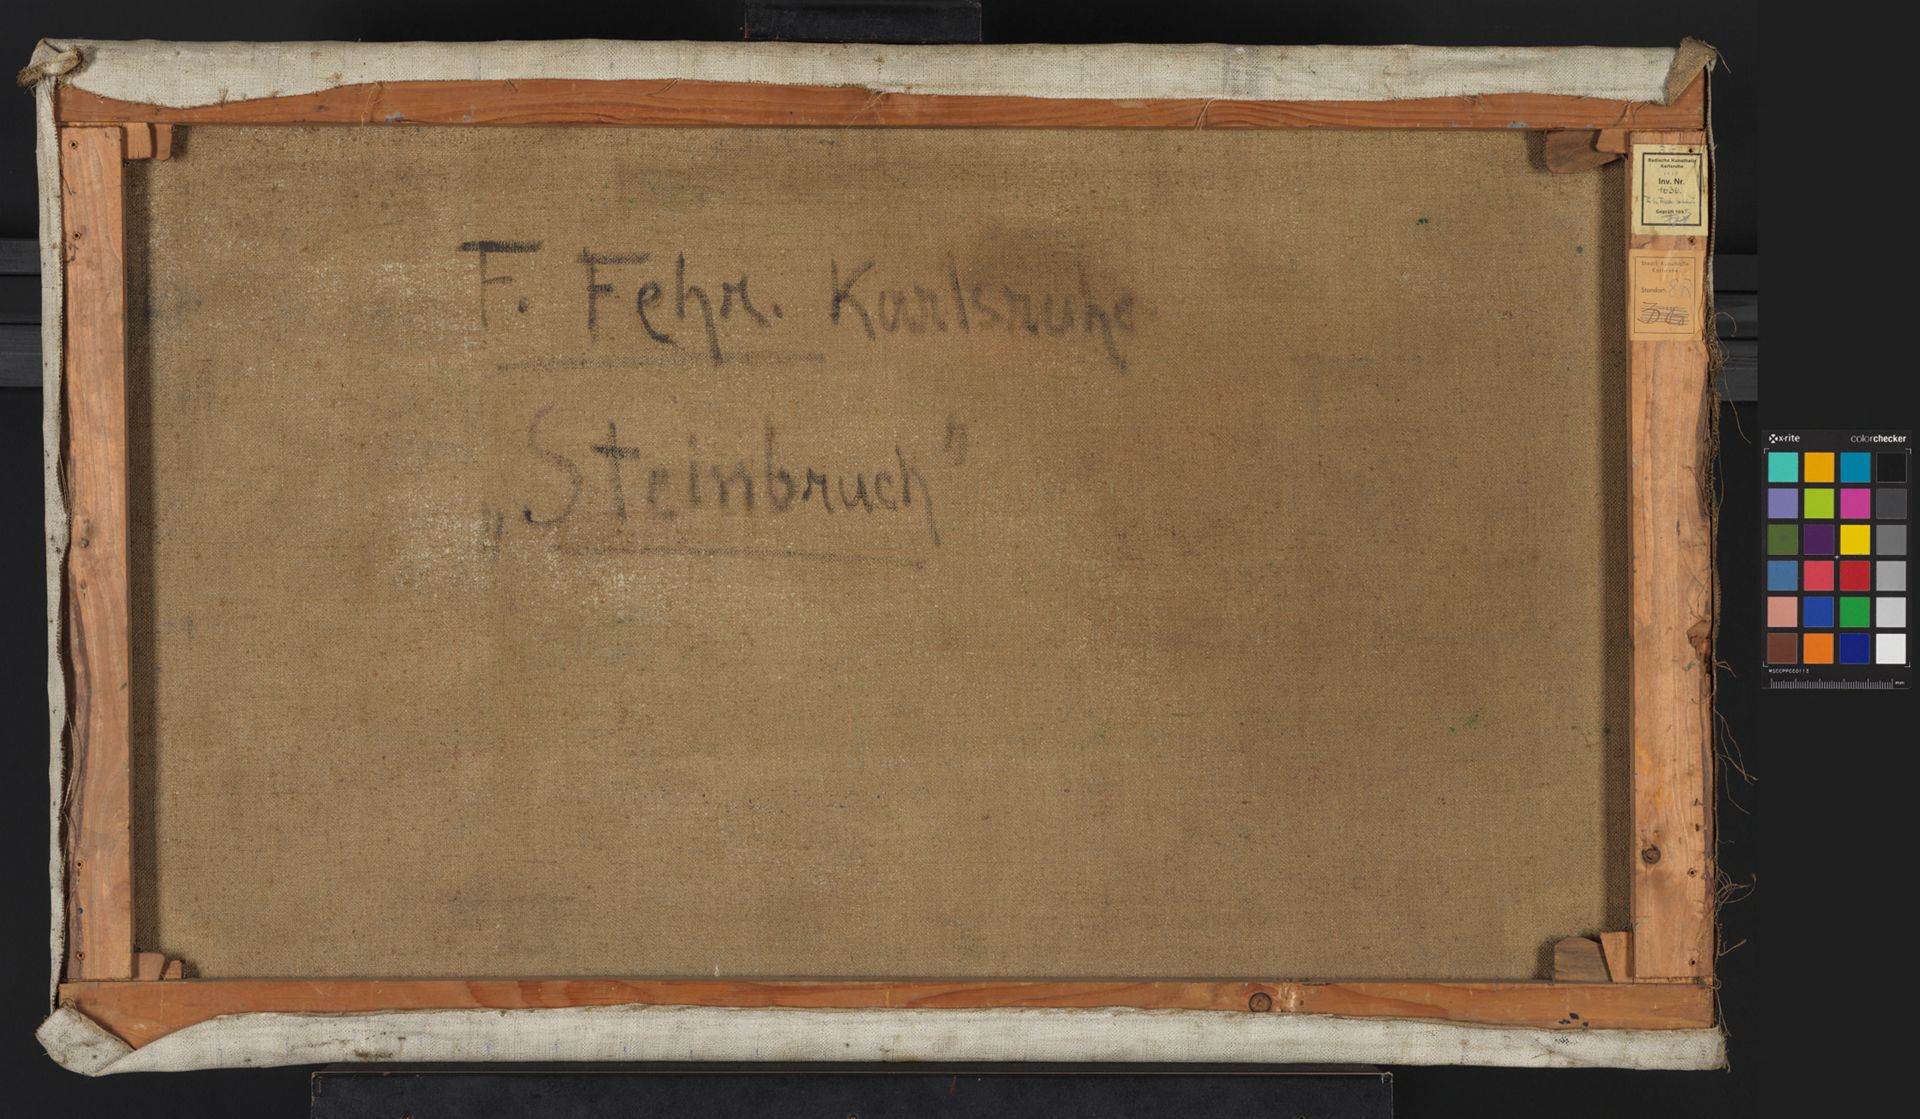 F. Fehr. Karlsruhe
„Steinbruch"
Badische Kunsthalle
Karlsruhe
Inv. Nr.
1030.
Geprüft 193
Staatl. Kunsthalle
Karlsruhe
Standort:
x-rite colorchecker
MSCCPPCC0113
mm